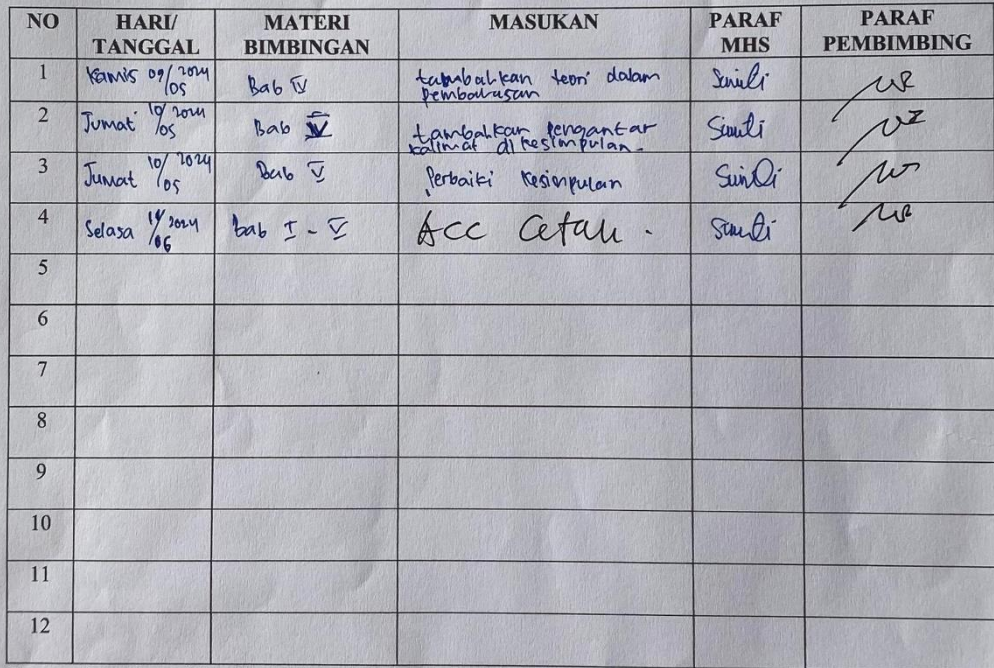 NO HARI/ TANGGAL MATERI BIMBINGAN MASUKAN PARAF MHS PARAF PEMBIMBING
1 Kamis 09/05 2024 Bab IV tambahkan teori dalam pembahasan
2 Jumat 10/05 2024 Bab tambahkan pengantar kalimat di kesimpulan.
3 Jumat 10/05 2024 Bab V Perbaiki Kesimpulan
4 Selasa /06 2024 bab I - V Acc Cetak.
5
6
7
8
9
10
11
12